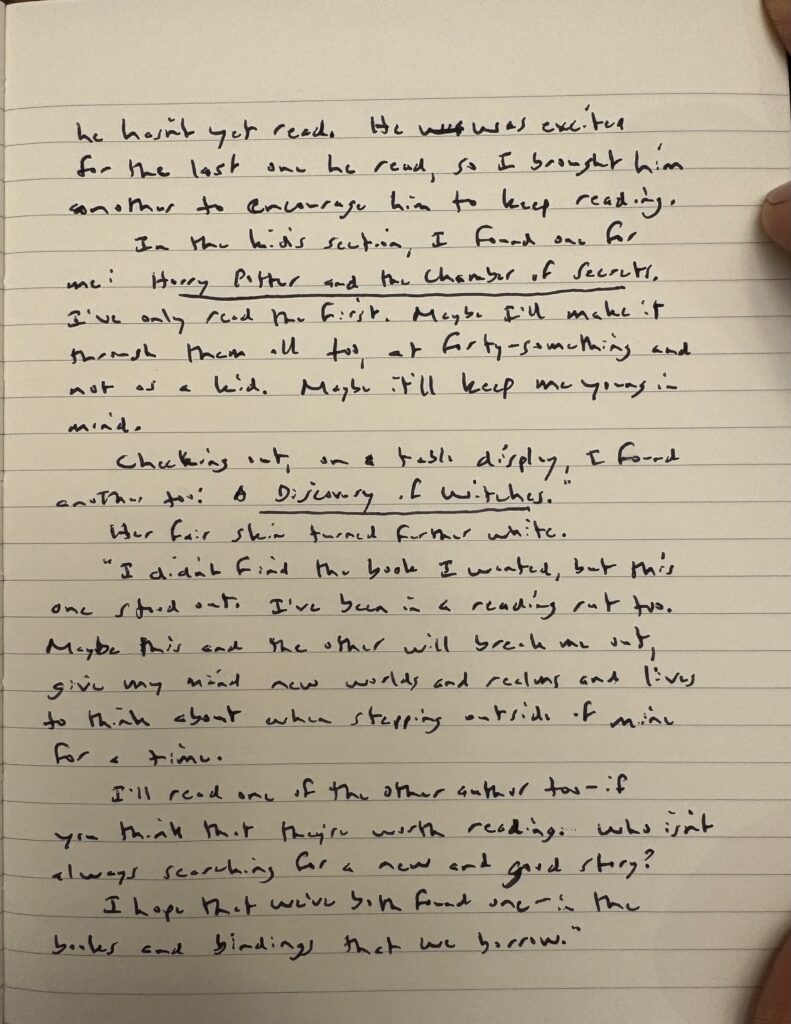 he hasn't yet read. He was was excited
for the last one he read, so I brought him
another to encourage him to keep reading.
In the kid's section, I found one for
me: Harry Potter and the Chamber of Secrets.
I've only read the first. Maybe I'll make it
through them all too, at forty-something and
not as a kid. Maybe it'll keep me young in
mind.
Checking out, on a table display, I found
another too: A Discovery of Witches."
Her fair skin turned further white.
"I didn't find the book I wanted, but this
one stood out. I've been in a reading rut too.
Maybe this and the other will break me out,
give my mind new worlds and realms and lives
to think about when stepping outside of mine
for a time.
I'll read one of the other author too—if
you think that they're worth reading. Who isn't
always searching for a new and good story?
I hope that we've both found one—in the
books and bindings that we borrow."